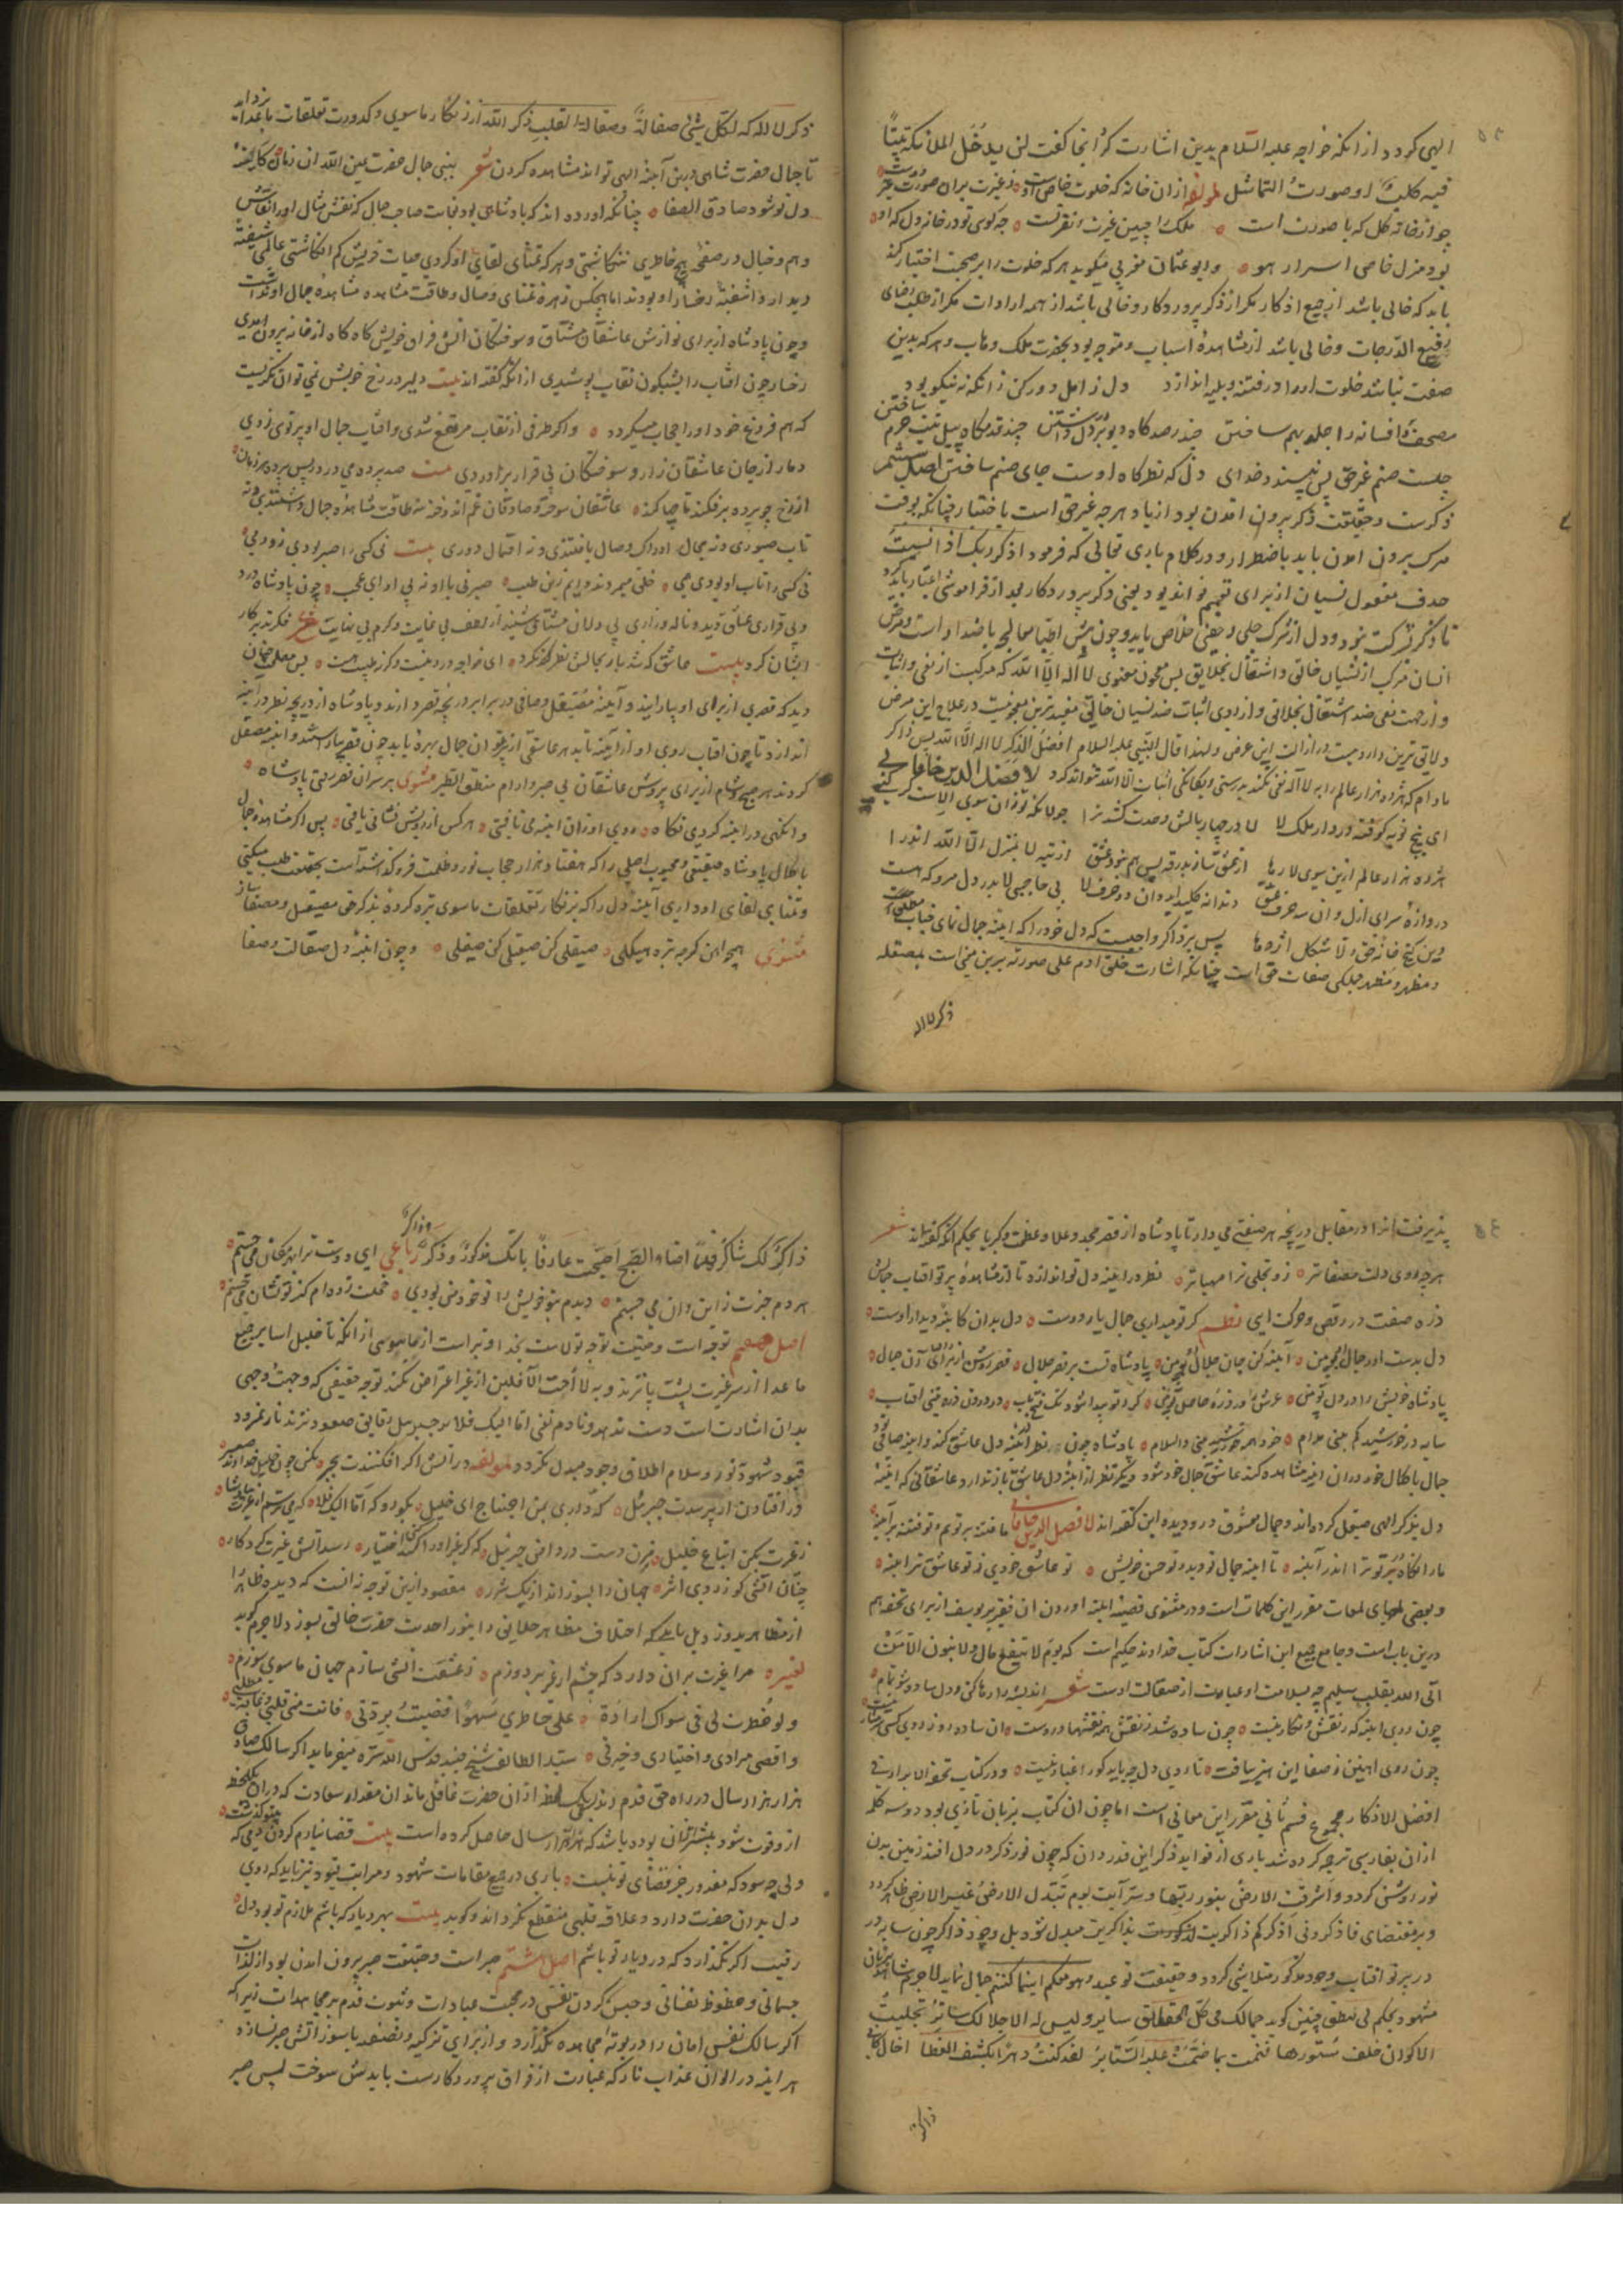 الهی کردد از انکه خواجه علیه السلام بدین اشارت کرد انجا کفت لن یدخل الملائکة بیتا
فیه کلب او صورت التماثیل لمولفه ازان خانه که خلوت خاص اوست ز غیرت بران صورت
چو از خانه کل که با صورت است ملک را چنین غیرت و نفرتست چه کوی تو در خانه دل که او
بود منزل خاص اسرار هو و ابو عثمان مغربی میکوید هر که خلوت را بر صحبت اختیار کند
باید که خالی باشد از جمیع اذکار مکر از ذکر پروردکار و خالی باشد از همه ارادات مکر از طلب رضای
رفیع الدرجات و خالی باشد از مشاهده اسباب و متوجه بود بحضرت ملک وهاب و هر که بدین
صفت نباشد خلوت او را در فتنه و بلیه اندازد دل ز امل دور کن زانکه نه نیکو بود
مصحف و افسانه را جلد بهم ساختن صد کاه دیو بر دل داشتن چند قدمکاه پیل بیت حرم ساختن
چیست صنم غیر حق پس نپسندد خدای دل که نظرکاه اوست جای صنم ساختن اصل ششم
ذکرست و حقیقت ذکر بیرون امدن بود از یاد هر چه غیر حق است باختیار چنانکه بوقت
مرک بیرون امدن باید باضطرار و در کلام باری تعالی که فرمود اذکر ربک اذا نسیت
حذف مفعول نسیان از برای تعمیم تواند بود یعنی ذکر پروردکار بعد از فراموشی اغیار باید کرد
تا ذکر شرکت نبود و دل از شرک جلی و خفی خلاص یابد و چون پیش اطبا معالجه باضداد است و مرض
انسان مرکب از نسیان خالق و اشتغال بخلایق پس معجون معنوی لا اله الا الله که مرکبست از نفی و اثبات
و از جهت نفی ضد اشتغال بخلایق و از روی اثبات ضد نسیان خالق مفیدترین معجونیست در علاج این مرض
و لایق ترین دارو یست در ازالت این عرض و لهذا قال النبی علیه السلام افضل الذکر لا اله الا الله پس ذاکر
مادام که هژده هزار عالم را به لا اله نفی نکند بدرستی و یکانکی اثبات الا الله نتواند کرد لافضل الدین خاقانی
ای پنج نوبه کوفته در دار ملک لا لا در چهار بالش وحدت کشد ترا جولانکه تو زان سوی الاست کر کنی
هژده هزار عالم ازین سوی لا رها از عشق ساز بدرقه پس هم بنور عشق از تیه لا بمنزل الا الله اندر ا
دروازه سرای ازل دان سه حرف عشق دندانه کلید ابد دان دو حرف لا بی حاجبی لا بدر دل مرو که هست
دین کنج خانه حق و لا شکل اژدها پس بر ذاکر واجبست که دل خود را که اینه جمال نمای جناب
و مظهر و منظهر جملکی صفات حق است چنانکه اشارت خلق ادم علی صورته برین مبنی است بمصقله
ذکر لا اله
ذکر لا اله که لکل شیئ صقالة و صقالة القلب ذکر الله از زنکار ماسوی و کدورت تعلقات باعدا بزداید
تا جمال حضرت شاهی درین آینه الهی تواند مشاهده کردن شعر ببینی جمال حضرت عین الله ان زمان کایینه
دل تو شود صادق الصفا چنانکه اورده اند که پادشاهی بود بغایت صاحب جمال که نقش مثال او را نقاش
وهم و خیال در صفحه هیچ خاطری ننکاشتی و هر که تمنای لقای او کردی حیات خویش کم انکاشتی عالمی شیفته
دیدار و اشفته رخسار او بودند اما هیچکس زهره تمنای وصال و طاقت مشاهده جمال او نداشت
و چون پادشاه از برای نوازش عاشقان مشتاق و سوختکان اتش فراق خویش کاه کاه از خانه بیرون امدی
رخسار چون افتاب را بشبکون نقاب پوشیدی از انکه کفته اند بیت دلیر در رخ خویش نمی توان نکریست
که هم فروغ خود او را حجاب میکردد و اکر طرفی از نقاب مرتفع شدی و افتاب جمال او پرتوی زدی
دمار از جان عاشقان زار و سوختکان بی قرار براوردی بیت صد پرده می درد پس پرده هر زمان
از رخ چو پرده برفکند تا چها کند عاشقان سوخته و صادقان غم اندوخته نه طاقت مشاهده جمال داشتندی و نه
تاب صبوری و نه مجال ادراک وصال یافتندی و نه احتمال دوری بیت نی کسی را صبر بودی زو دمی
نی کسی را تاب او بودی همی خلق میمردند دایم زین طلب صبر نی با او نه بی او ای عجب چون پادشاه درد
و بی قراری عشاق دید و ناله و زاری بی دلان مشتاق شنید از لطف بی غایت و کرم بی نهایت خود فکر تدبیر کار
ایشان کرد بیت عاشق که شد یار بحالش نظر نکرد ای خواجه درد نیست وکرنه طبیب هست پس مصلحت چنان
دید که قصری از برای او بیارایند و آینه مصقل و صافی در برابر دریچه قصر دارند و پادشاه از دریچه نظر در اینه
اندازد تا چون افتاب روی او از آینه تابد هر عاشقی از پرتو ان جمال بهره یابد چون قصر بیاراستند و اینه مصقل
کردند هر صبح و شام از برای پرورش عاشقان بی صبر و ارام منطق الطیر مثنوی بر سر ان قصر رفتی پادشاه
وانکهی در اینه کردی نکاه روی او زان اینه می تافتی هر کس از رویش نشانی یافتی پس اکر مشاهده جمال
با کمال پادشاه حقیقی و محبوب اصلی را که هفتاد هزار حجاب نور و ظلمت فرو کذاشته است بحقیقت طلب میکنی
و تمنای لقای او داری آینه دل را که بزنکار تعلقات ماسوی تیره کرده بذکر حق مصیقل و مصفا ساز
مثنوی همچو اهن کرچه تیره هیکلی صیقلی کن صیقلی کن صیقلی و چون اینه دل صقالت و صفا
پذیرفت انرا در مقابل دریچه هر صفتی می دار تا پادشاه از قصر مجد و علا و عظمت و کبریا بحکم انکه کفته اند شعر
هر چه روی دلت مصفاتر زو تجلی ترا مهیاتر نظر در اینه دل تو اندازد تا از مشاهده پرتو افتاب جمالش
ذره صفت در رقص و حرکت ایی نظم کر تو میداری جمال یار دوست دل بدان کاینه دیدار اوست
دل بدست اور جمال او ببین آینه کن جان جلال او ببین پادشاه تست بر قصر جلال قصر روشن ز افتاب آن جمال
پادشاه خویش را در دل ببین عرش را در ذره حاصل ببین
سایه در خورشید کم بینی مدام خود همه خورشید بینی والسلام پادشاه چون نظر در اینه دل عاشق کند و اینه صافی بود
جمال با کمال خود دران اینه مشاهده کند عاشق جمال خود شود دیکر نظر از اینه دل عاشق باز ندارد و عاشقانی که اینه
دل بذکر الهی صیقل کرده اند و جمال معشوق در و دیده این کفته اند لافضل الدین خاقانی ما فتنه بر توییم و تو فتنه بر آینه
ما را نکاه بر تو ترا اندر آینه تا اینه جمال تو دید و تو حسن خویش تو عاشق خودی ز تو عاشق تر اینه
و بعضی لمعات مقرر این کلمات است و در مثنوی قصه اینه اوردن ان فقیر بر یوسف از برای تحفه هم
درین باب است و جامع جمیع این اشارات کتاب خداوند حکیم است که یوم لا ینفع مال و لا بنون الا من
اتی الله بقلب سلیم چه سلامت او عبارت از صقالت اوست شعر اندیشه را رها کن و دل ساده شو تمام
چون روی اینه که ز نقش و نکار نیست چون ساده شد ز نقش همه نقشها دروست ان ساده رو ز روی کسی شرمسار نیست
چون روی اهنین ز صفا این هنر بیافت تا روی دل چه یابد کو را غبار نیست و در کتاب تحفة الابرار فی
افضل الاذکار مجموع قسم ثانی مقرر این معانی است اما چون ان کتاب بزبان تازی بود دو سه کلمه
ازان بفارسی ترجمه کرده شد باری از فواید ذکر این قدر دان که چون نور ذکر در دل افتد زمین بدن
نور روشن کردد و اشرقت الارض بنور ربها و سر آیت یوم تبدل الارض غیر الارض ظاهر کردد
و بمقتضای فاذکرونی اذکرکم ذاکریت بمذکوریت مبدل شود بل وجود ذاکر چون سایه در
در پرتو افتاب وجود مذکور متلاشی کردد و حقیقت توحید و هو معکم اینما کنتم جمال نماید لاجرم شاهد
مشهود بحکم لی نطق چنین کوید جمالک فی کل الحقایق سایر و لیس له الا جلالک ساتر تجلیت
الاکوان خلف ستورها فنمت بما ضمت علیه الستایر لقد کنت دهرا قبل ان یکشف الغطا اخال کانی
ذاکر
ذاکر لک شاکر فلما اضاء الصبح اصبحت عارفا بانک مذکور و ذکر و ذاکر رباعی ای دوست ترا بهر مکان می جستم
هر دم خبرت ز این و ان می جستم دیدم بتو خویش را تو خود من بودی خجلت زده ام کز تو نشان می جستم
اصل هفتم توجه است و حقیقت توجه تولاست بخدا و تبرا است از ماسوی از انکه تا خلیل اسا بر جمیع
ماعدا از سر غیرت پشت پا نزند و به لا احب الآفلین از غیر اعراض نکند توجه حقیقی که وجهت وجهی
بدان اشارت است دست ندهد و تا دم نفی اما الیک فلا بر جبریل نزند نار نمرود
قیود شهود نور و سلام اطلاق وجود مبدل نکردد لمولفه در اتش اکر افکنندت بجبر مکن چون خلیل خداوند
ور افتادن ار پرسدت جبرئیل که داری بمن احتیاج ای خلیل بکو رو که اما الیک فلا که می ترسم از غیرت پادشا
ز غیرت بکن اتباع خلیل بزن دست رد در رخ جبرئیل که کر غیر او را کنی اختیار رسد اتش غیرت کردکار
چنان اتشی کو ز روی اثر جهان را بسوزاند از یک شرر مقصود ازین توجه نه انست که دیده ظاهر
از مظاهر بدوزد بل باید که اختلاف مظاهر خلایق را بنور احدیت حضرت خالق بسوزد لاجرم کوید
لغیره مرا غیرت بران دارد که چشم از غیر بر دوزم ز عشقت اتشی سازم جهان ماسوی سوزم
و لو خطرت لی فی سواک ارادة علی خاطری سهوا قضیت بردتی فانت منی قلبی و غایة مطلبی
و اقصی مرادی و اختیاری و خیرتی سید الطایفه شیخ جنید قدس الله سره میفرماید اکر سالک صادق
هزار هزار سال در راه حق قدم زند یک لحظه ازان حضرت غافل ماند ان مقدار سعادت که دران یک لحظه
از و فوت شود بیشتر ازان بوده باشد که در هزار هزار سال حاصل کرده است بیت قضا نیارم کردن دمی که بیتو کذشت
ولی چه سود که مقدور جز قضای تو نیست باری در جمیع مقامات شهود و مراتب قیود نیز باید که روی
دل بدان حضرت دارد و علاقه قلبی منقطع نکرداند و کوید بیت بهر دیار که باشم ملازم تو بود دل
رقیب اکر نکذارد که در دیار تو باشم اصل هشتم صبر است و حقیقت صبر بیرون امدن بود از لذات
جسمانی و حظوظ نفسانی و حبس کردن نفس در محبت عبادات و ثبوت قدم بر مجاهدات زیرا که
اکر سالک نفس امان را در بوته مجاهده نکدازد و از برای تزکیه و تصفیه با سوز اتش صبر نسازد
هر اینه در الوان عذاب نار که عبارت از فراق پروردکارست بایدش سوخت پس صبر